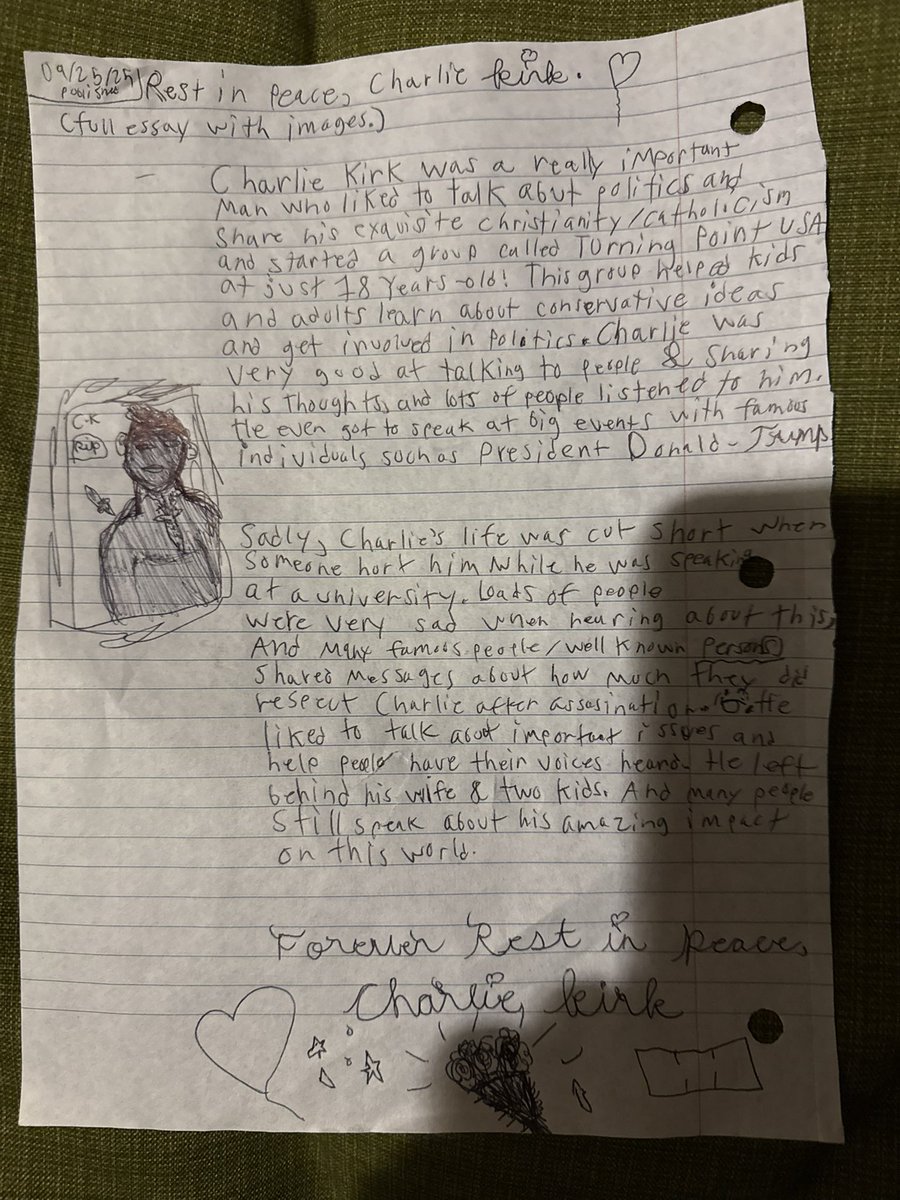 09/25/25
published
Rest in peace, Charlie Kirk.
(full essay with images.)
Charlie Kirk was a really important
Man who liked to talk abut politics and
Share his exquisite christianity/catholicism
and started a group called Turning Point USA
at just 18 Years-old! This group helped kids
and adults learn about conservative ideas
and get involved in politics. Charlie was
very good at talking to people & Sharing
his thoughts, and lots of people listened to him.
He even got to speak at big events with famous
individuals such as President Donald-Trump
C.K
Rip
Sadly, Charlie's life was cut short when
Someone hort him while he was speaking
at a university. Loads of people
were very sad when hearing about this,
And Many famous people/well known Persons
Shared Messages about how much they did
respect Charlie after assasination. He
liked to talk about important issues and
help people have their voices heard. He left
behind his wife & two kids. And many people
Still speak about his amazing impact
on this world.
Forever Rest in peace,
Charlie, kirk